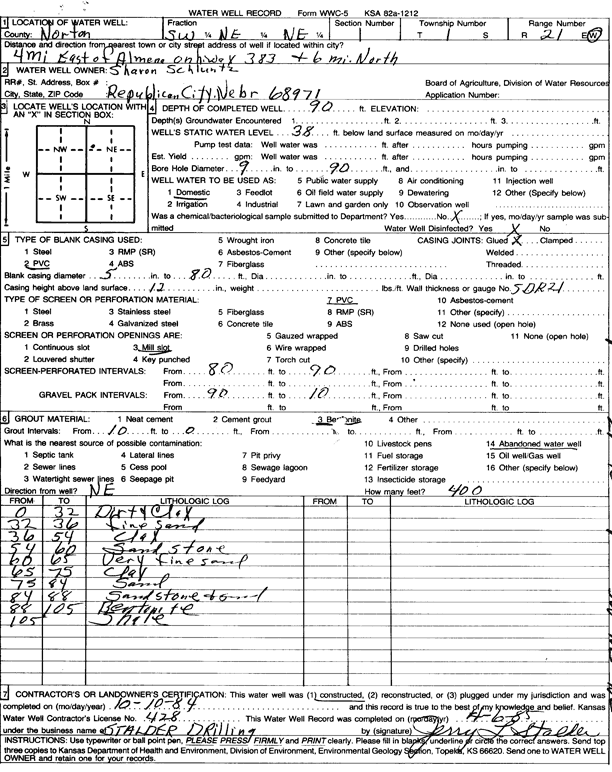 WATER WELL RECORD Form WWC-5 KSA 82a-1212
1 LOCATION OF WATER WELL: Fraction Section Number Township Number Range Number
County: Norton SW ¼ NE ¼ NE ¼ T S R 21 E/W
Distance and direction from nearest town or city street address of well if located within city?
4 mi East of Almena on hiway 383 + 6 mi. North
2 WATER WELL OWNER: Sharon Schluntz
RR#, St. Address, Box # : Board of Agriculture, Division of Water Resources
City, State, ZIP Code : Republican City, Nebr 68971 Application Number:
3 LOCATE WELL'S LOCATION WITH AN "X" IN SECTION BOX:
N
NW NE
W E
SW SE
S
1 Mile
4 DEPTH OF COMPLETED WELL 90 ft. ELEVATION:
Depth(s) Groundwater Encountered 1. ft. 2. ft. 3. ft.
WELL'S STATIC WATER LEVEL 38 ft. below land surface measured on mo/day/yr
Pump test data: Well water was ft. after hours pumping gpm
Est. Yield gpm: Well water was ft. after hours pumping gpm
Bore Hole Diameter 9 in. to 90 ft., and in. to ft.
WELL WATER TO BE USED AS: 5 Public water supply 8 Air conditioning 11 Injection well
1 Domestic 3 Feedlot 6 Oil field water supply 9 Dewatering 12 Other (Specify below)
2 Irrigation 4 Industrial 7 Lawn and garden only 10 Observation well
Was a chemical/bacteriological sample submitted to Department? Yes No X ; If yes, mo/day/yr sample was submitted
Water Well Disinfected? Yes X No
5 TYPE OF BLANK CASING USED: 5 Wrought iron 8 Concrete tile CASING JOINTS: Glued X Clamped
1 Steel 3 RMP (SR) 6 Asbestos-Cement 9 Other (specify below) Welded
2 PVC 4 ABS 7 Fiberglass Threaded
Blank casing diameter 5 in. to 80 ft., Dia in. to ft., Dia in. to ft.
Casing height above land surface 12 in., weight lbs./ft. Wall thickness or gauge No. SDR21
TYPE OF SCREEN OR PERFORATION MATERIAL: 7 PVC 10 Asbestos-cement
1 Steel 3 Stainless steel 5 Fiberglass 8 RMP (SR) 11 Other (specify)
2 Brass 4 Galvanized steel 6 Concrete tile 9 ABS 12 None used (open hole)
SCREEN OR PERFORATION OPENINGS ARE: 5 Gauzed wrapped 8 Saw cut 11 None (open hole)
1 Continuous slot 3 Mill slot 6 Wire wrapped 9 Drilled holes
2 Louvered shutter 4 Key punched 7 Torch cut 10 Other (specify)
SCREEN-PERFORATED INTERVALS: From 80 ft. to 90 ft., From ft. to ft.
From ft. to ft., From ft. to ft.
GRAVEL PACK INTERVALS: From 90 ft. to 10 ft., From ft. to ft.
From ft. to ft., From ft. to ft.
6 GROUT MATERIAL: 1 Neat cement 2 Cement grout 3 Bentonite 4 Other
Grout Intervals: From 10 ft. to 0 ft., From ft. to ft., From ft. to ft.
What is the nearest source of possible contamination: 10 Livestock pens 14 Abandoned water well
1 Septic tank 4 Lateral lines 7 Pit privy 11 Fuel storage 15 Oil well/Gas well
2 Sewer lines 5 Cess pool 8 Sewage lagoon 12 Fertilizer storage 16 Other (specify below)
3 Watertight sewer lines 6 Seepage pit 9 Feedyard 13 Insecticide storage
Direction from well? NE How many feet? 400
FROM TO LITHOLOGIC LOG FROM TO LITHOLOGIC LOG
0 32 Dirty Clay
32 36 fine sand
36 54 Clay
54 60 Sandstone
60 65 Very fine sand
65 75 Clay
75 84 Sand
84 88 Sandstone + sand
88 105 Bentonite
105 Shale
7 CONTRACTOR'S OR LANDOWNER'S CERTIFICATION: This water well was (1) constructed, (2) reconstructed, or (3) plugged under my jurisdiction and was
completed on (mo/day/year) 10-10-84 and this record is true to the best of my knowledge and belief. Kansas
Water Well Contractor's License No. 428 This Water Well Record was completed on (mo/day/yr)
under the business name of STALDER Drilling by (signature) Jerry L Stalder
INSTRUCTIONS: Use typewriter or ball point pen, PLEASE PRESS FIRMLY and PRINT clearly. Please fill in blanks, underline or circle the correct answers. Send top
three copies to Kansas Department of Health and Environment, Division of Environment, Environmental Geology Section, Topeka, KS 66620. Send one to WATER WELL
OWNER and retain one for your records.